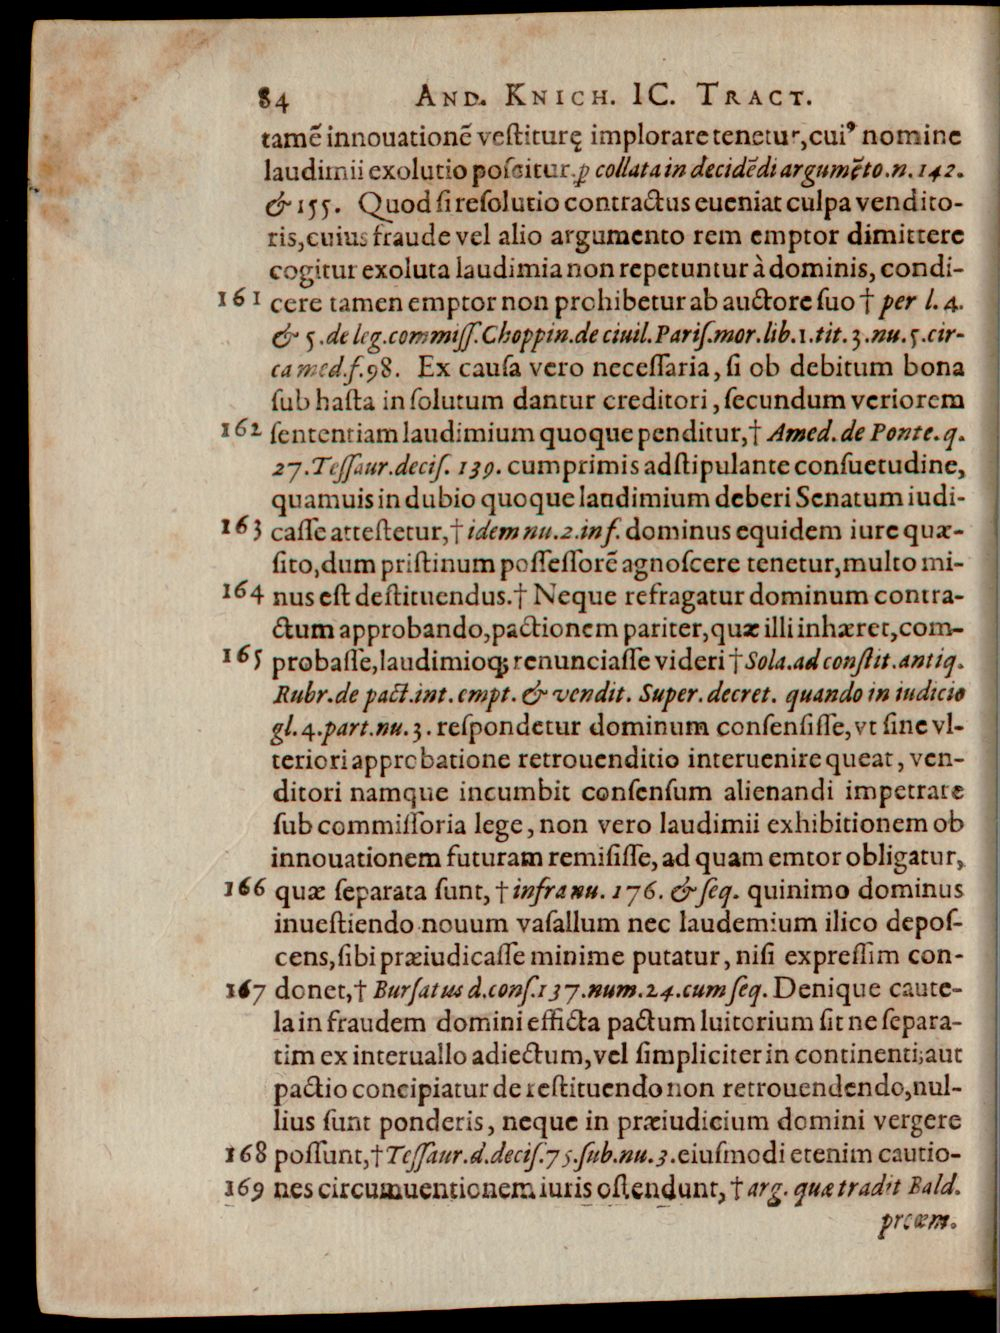 84 AND. KNICH. IC. TRACT.
tamē innouationē veſtiturę implorare tenetur, cui⁹ nomine
laudimii exolutio poſcitur. ꝑ collata in decidēdi argumēto. n. 142.
& 155. Quod ſi reſolutio contractus eueniat culpa vendito-
ris, cuius fraude vel alio argumento rem emptor dimittere
cogitur exoluta laudimia non repetuntur à dominis, condi-
161 cere tamen emptor non prohibetur ab auctore ſuo † per l. 4.
& 5. de leg. commiſſ. Choppin. de ciuil. Pariſ. mor. lib. 1. tit. 3. nu. 5. cir-
ca med. f. 98. Ex cauſa vero neceſſaria, ſi ob debitum bona
ſub haſta in ſolutum dantur creditori, ſecundum veriorem
162 ſententiam laudimium quoque penditur, † Amed. de Ponte. q.
27. Teſſaur. deciſ. 139. cumprimis adſtipulante conſuetudine,
quamuis in dubio quoque laudimium deberi Senatum iudi-
163 caſſe atteſtetur, † idem nu. 2. inf. dominus equidem iure quæ-
ſito, dum priſtinum poſſeſſorē agnoſcere tenetur, multo mi-
164 nus eſt deſtituendus. † Neque refragatur dominum contra-
ctum approbando, pactionem pariter, quæ illi inhæret, com-
165 probaſſe, laudimioq; renunciaſſe videri † Sola. ad conſtit. antiq.
Rubr. de pact. int. empt. & vendit. Super. decret. quando in iudicio
gl. 4. part. nu. 3. reſpondetur dominum conſenſiſſe, vt ſine vl-
teriori approbatione retrouenditio interuenire queat, ven-
ditori namque incumbit conſenſum alienandi impetrare
ſub commiſſoria lege, non vero laudimii exhibitionem ob
innouationem futuram remiſiſſe, ad quam emtor obligatur,
166 quæ ſeparata ſunt, † infra nu. 176. & ſeq. quinimo dominus
inueſtiendo nouum vaſallum nec laudemium ilico depoſ-
cens, ſibi præiudicaſſe minime putatur, niſi expreſſim con-
167 donet, † Burſatus d. conſ. 137. num. 24. cum ſeq. Denique caute-
la in fraudem domini efficta pactum luitorium ſit ne ſepara-
tim ex interuallo adiectum, vel ſimpliciter in continenti; aut
pactio concipiatur de reſtituendo non retrouendendo, nul-
lius ſunt ponderis, neque in præiudicium domini vergere
168 poſſunt, † Teſſaur. d. deciſ. 75. ſub. nu. 3. eiuſmodi etenim cautio-
169 nes circumuentionem iuris oſtendunt, † arg. quæ tradit Bald.
prœm.